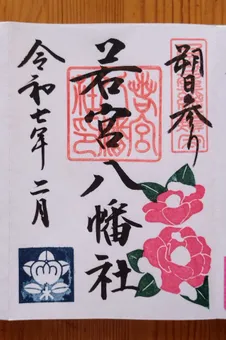 朔日参り
若宮八幡社
令和七年二月